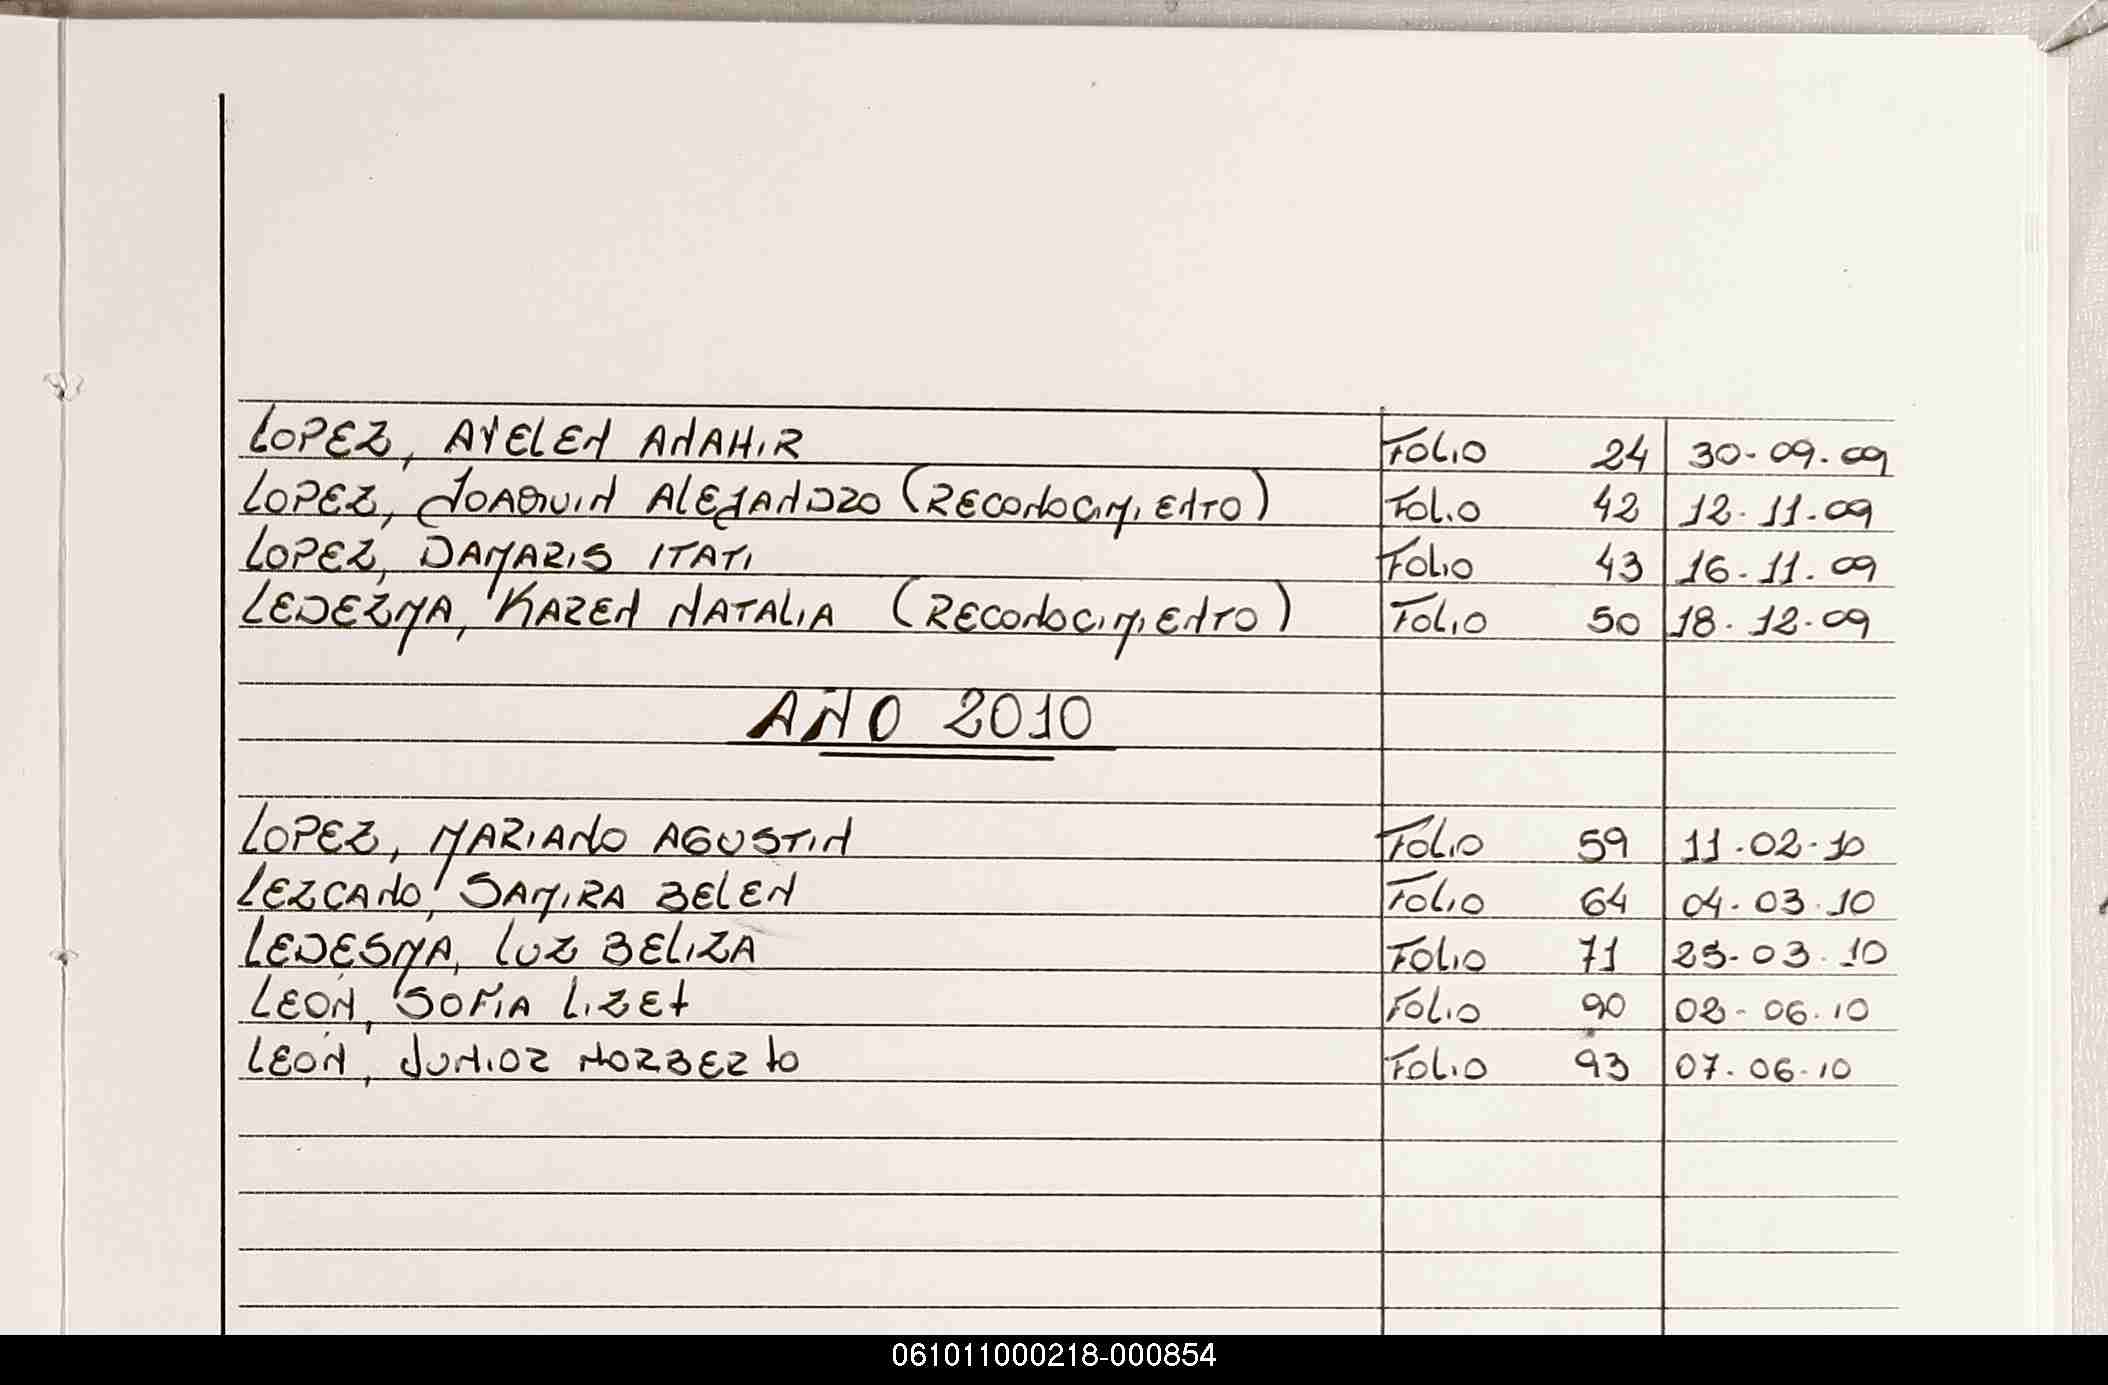 LOPEZ, AYELEN ANAHIR Folio 24 30-09-09
LOPEZ, JOAQUIN ALEJANDRO (RECONOCIMIENTO) Folio 42 12-11-09
LOPEZ, DAMARIS ITATI Folio 43 16-11-09
LEDEZMA, KAREN NATALIA (RECONOCIMIENTO) Folio 50 18-12-09
AÑO 2010
LOPEZ, MARIANO AGUSTIN Folio 59 11-02-10
LEZCANO, SAMIRA BELEN Folio 64 04-03-10
LEDESMA, LUZ BELIZA Folio 71 23-03-10
LEON, SOFIA LIZET Folio 90 02-06-10
LEON, JUNIOR NORBERTO Folio 93 07-06-10
061011000218-000854